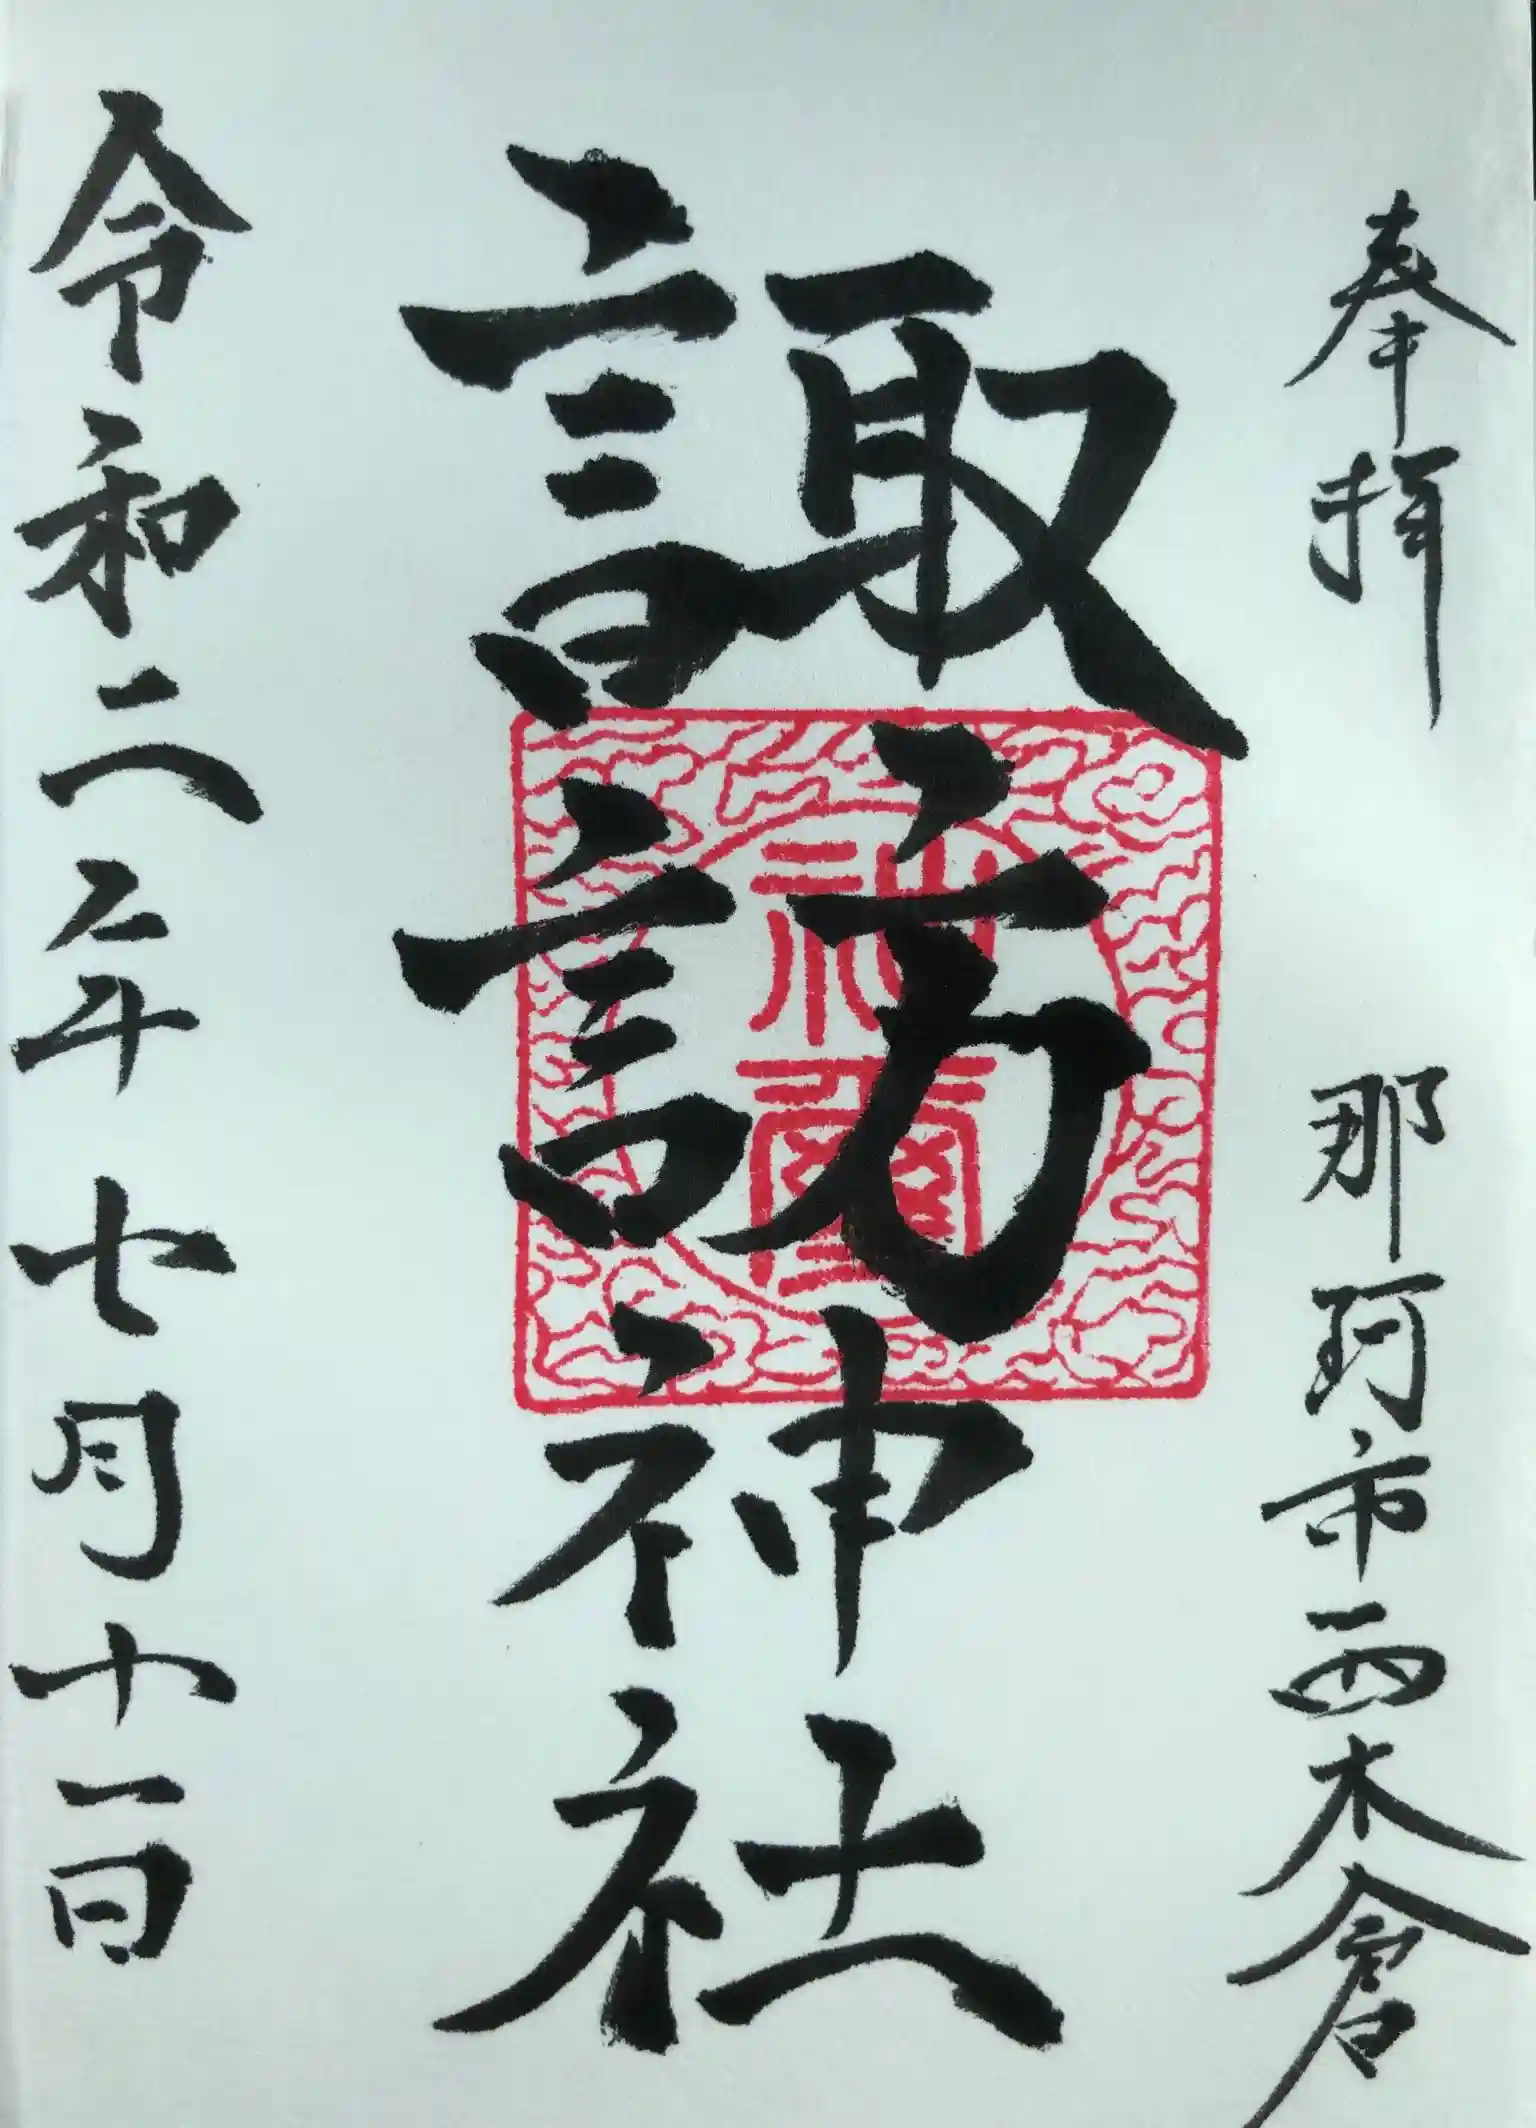 奉拝 那珂市西木倉
諏訪神社
神璽
令和二年七月十一日